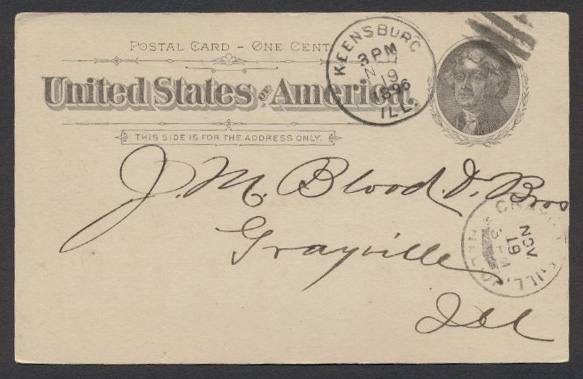 POSTAL CARD - ONE CENT
United States of America
THIS SIDE IS FOR THE ADDRESS ONLY.
KEENSBURG
3 PM
19
1896
ILL.
J. M. Blood & Bros
Grayville
Ill
NOV
19
ILL.